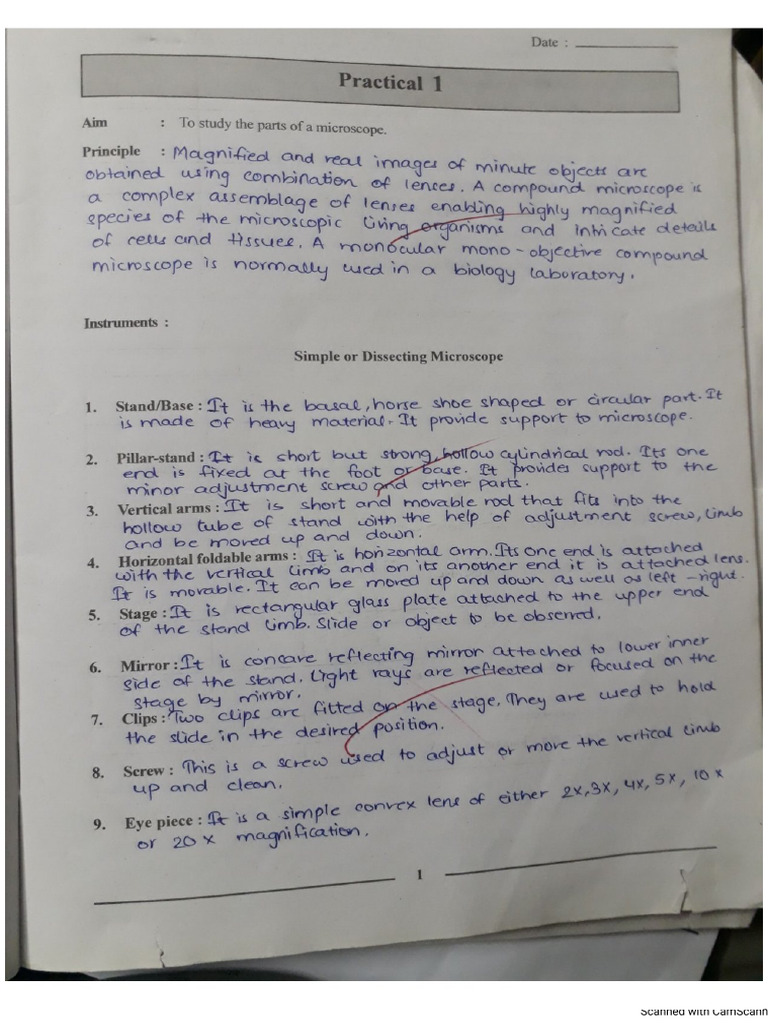 Date :
Practical 1
Aim : To study the parts of a microscope.
Principle : Magnified and real images of minute objects are
obtained using combination of lenses. A compound microscope is
a complex assemblage of lenses enabling highly magnified
species of the microscopic living organisms and intricate details
of cells and tissues. A monocular mono-objective compound
microscope is normally used in a biology laboratory.
Instruments :
Simple or Dissecting Microscope
1. Stand/Base : It is the basal, horse shoe shaped or circular part. It
is made of heavy material. It provide support to microscope.
2. Pillar-stand : It is short but strong, hollow cylindrical rod. Its one
end is fixed at the foot or base. It provides support to the
minor adjustment screw and other parts.
3. Vertical arms : It is short and movable rod that fits into the
hollow tube of stand with the help of adjustment screw, limb
and be moved up and down.
4. Horizontal foldable arms : It is horizontal arm. Its one end is attached
with the vertical limb and on its another end it is attached lens.
It is movable. It can be moved up and down as well as left-right.
5. Stage : It is rectangular glass plate attached to the upper end
of the stand limb. Slide or object to be observed.
6. Mirror : It is concave reflecting mirror attached to lower inner
side of the stand. Light rays are reflected or focused on the
stage by mirror.
7. Clips : Two clips are fitted on the stage. They are used to hold
the slide in the desired position.
8. Screw : This is a screw used to adjust or move the vertical limb
up and clean.
9. Eye piece : It is a simple convex lens of either 2x, 3x, 4x, 5x, 10x
or 20x magnification.
1
Scanned with CamScann